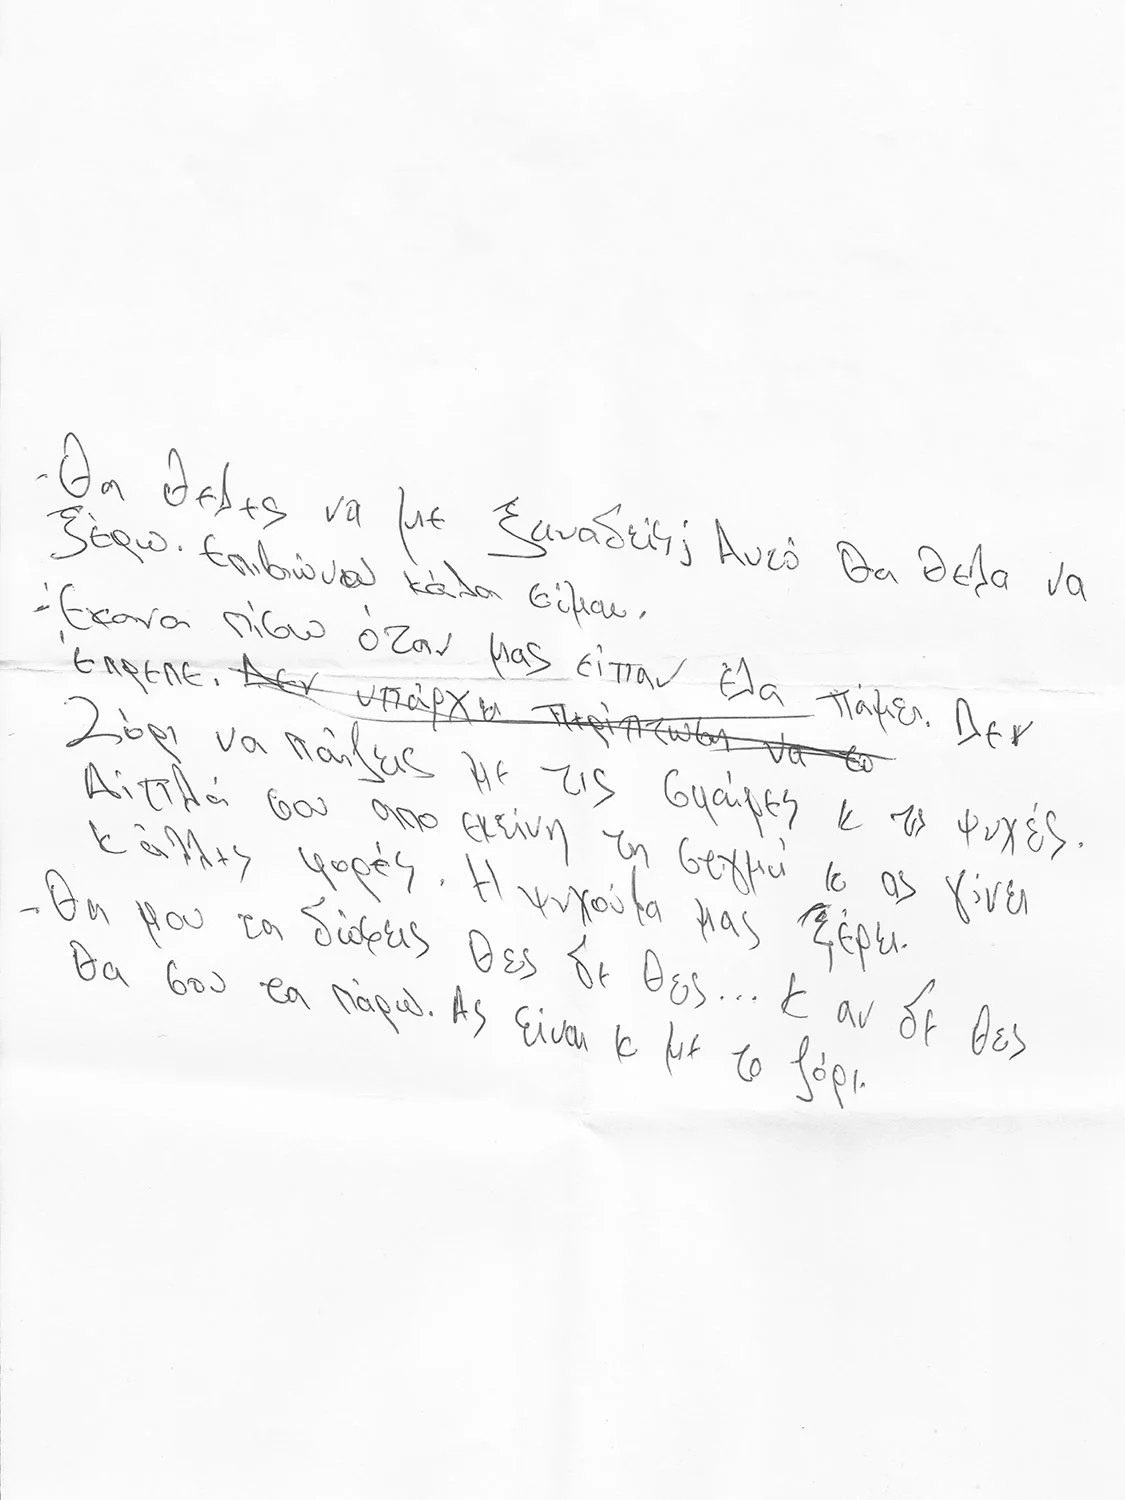 -Θα θελες να με ξαναδείς; Αυτό θα θελα να
ξέρω. Επιβιώνω καλα είμαι.
-Έκανα πίσω όταν μας είπαν έλα πάμε. Δεν
έπρεπε. Δεν υπάρχει περίπτωση να το
Ζόρι να παίζεις με τις σφαίρες κ τις ψυχές.
Δίπλά σου απο εκείνη τη στιγμή κ ας γίνει
κ άλλες φορές. Η ψυχούλα μας ξέρει.
-Θα μου τα δώσεις θες δε θες... κ αν δε θες
θα σου τα πάρω. Ας είναι κ με το ζόρι.